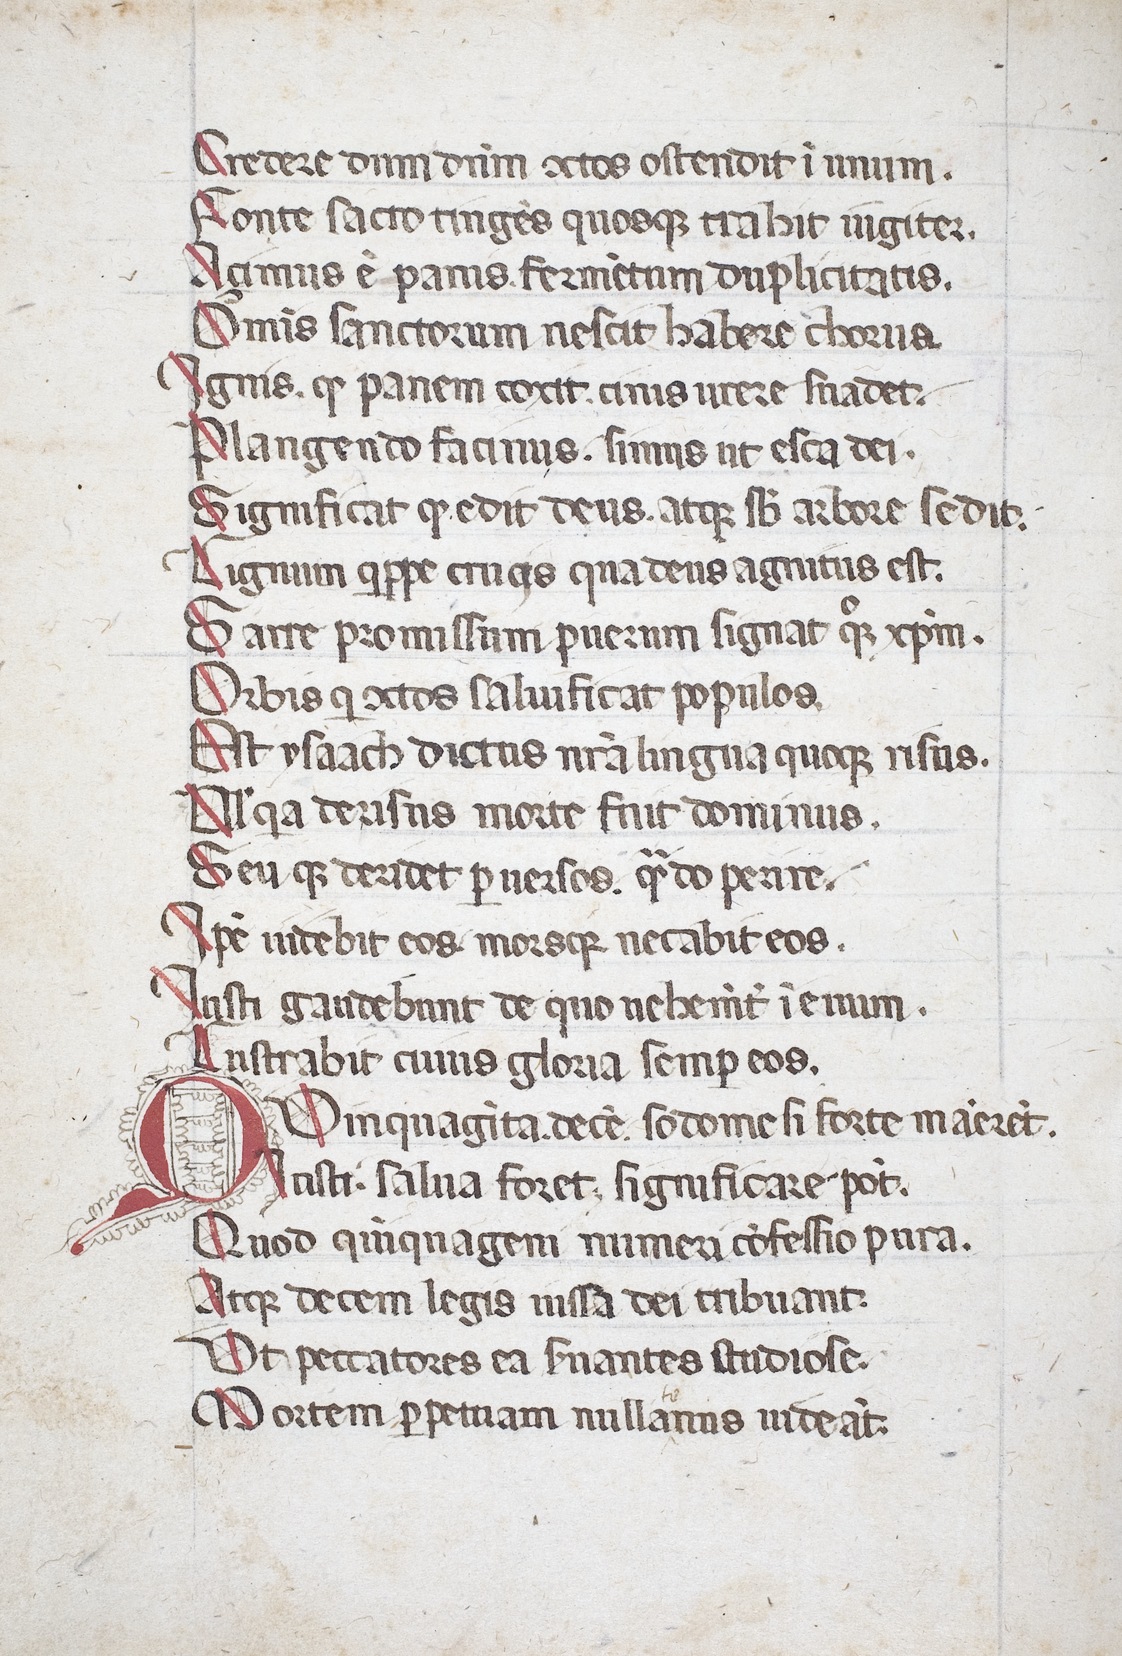 Credere dum dñm cͻctos ostendit ĩ unum .
Fonte sacro tingẽs quosqꝫ trahit iugiter .
Acimus ẽ panis . fermẽtum duplicitatis .
Om̃is sanctorum nescit habere chorus
Ignis . qͥ panem coxit . cinis urere suadet .
Plangendo facinus . simus ut esca dei .
Significat qͥ edit deus . atqꝫ sb̃ arbore sedit .
Lignum qͥppe crucis qua deus agnitus est .
Sarre promissum puerum signat qͦqꝫ xp̃m .
Orbis qͥ cͻctos saluificat populos
Est ysaach dictus nr̃a lingua quoqꝫ risus .
Ill̓ qͥa derisus morte fuit dominus .
Seu qꝫ deridet ꝑuersos . qͣñdo perire .
Ip̃e uidebit eos . morsqꝫ necabit eos .
Iusti gaudebunt de quo uehem̃t̓ ĩ euum .
Lustrabit cuius gloria semꝑ eos .
QVinquagĩta . decẽ . sodome si forte mãerẽt .
Iusti . salua foret , significare põt .
Quod quĩquageni numeri cõfessio pura .
Atqꝫ decem legis iussa dei tribuant .
Vt peccatores ea s̓uantes studiose .
Mortem ꝑpetuam nullatenus uideãt .